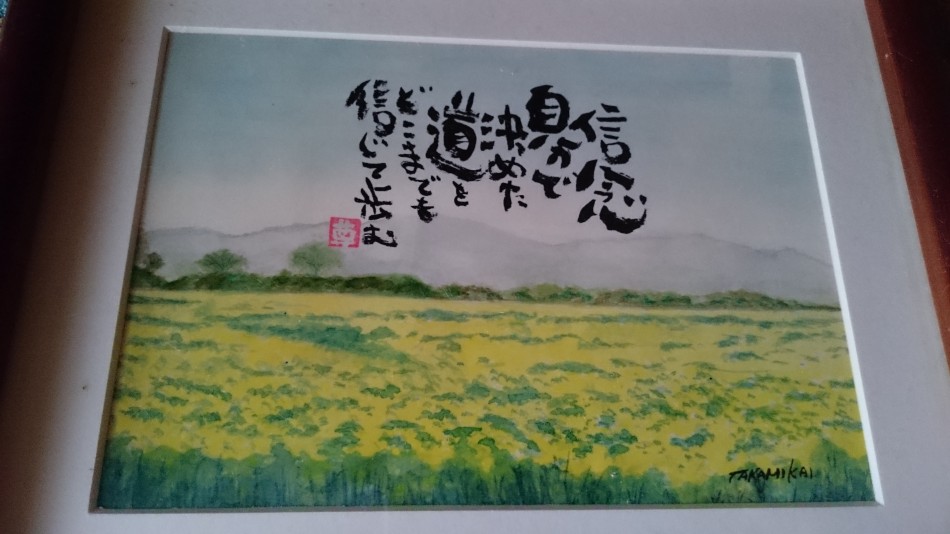 信念
自分で
決めた
道を
どこまでも
信じて歩む
TAKAMIKAI